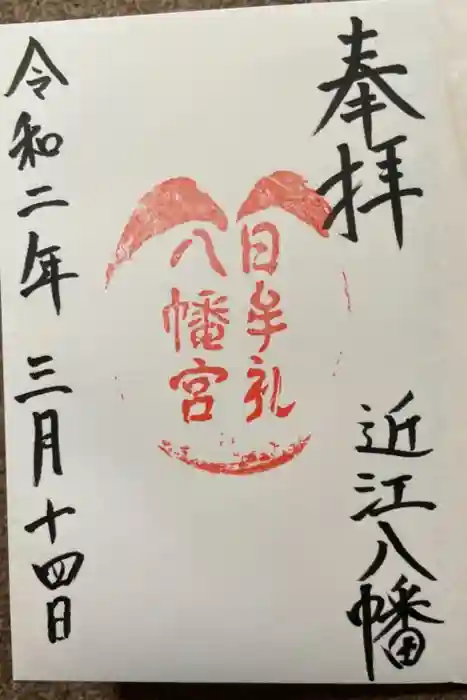 奉拝
近江八幡
日牟礼
八幡宮
令和二年三月十四日